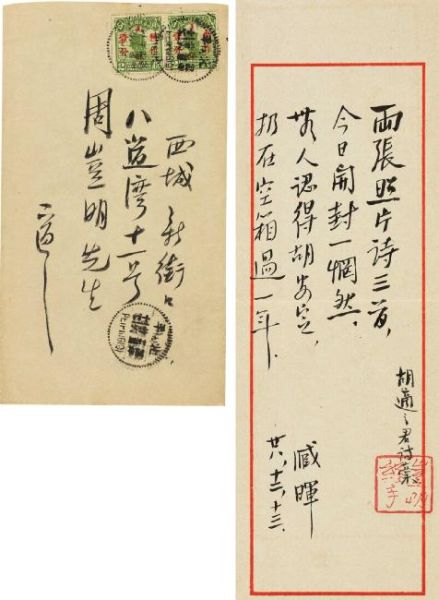 西城新街口
八道灣十一号
周豈明先生
兩張照片诗三首，
今日開封一惘然，
無人認得胡安定，
扔在空箱過一年．
臧暉
廿八．十二．十三．
胡適之君詩稾